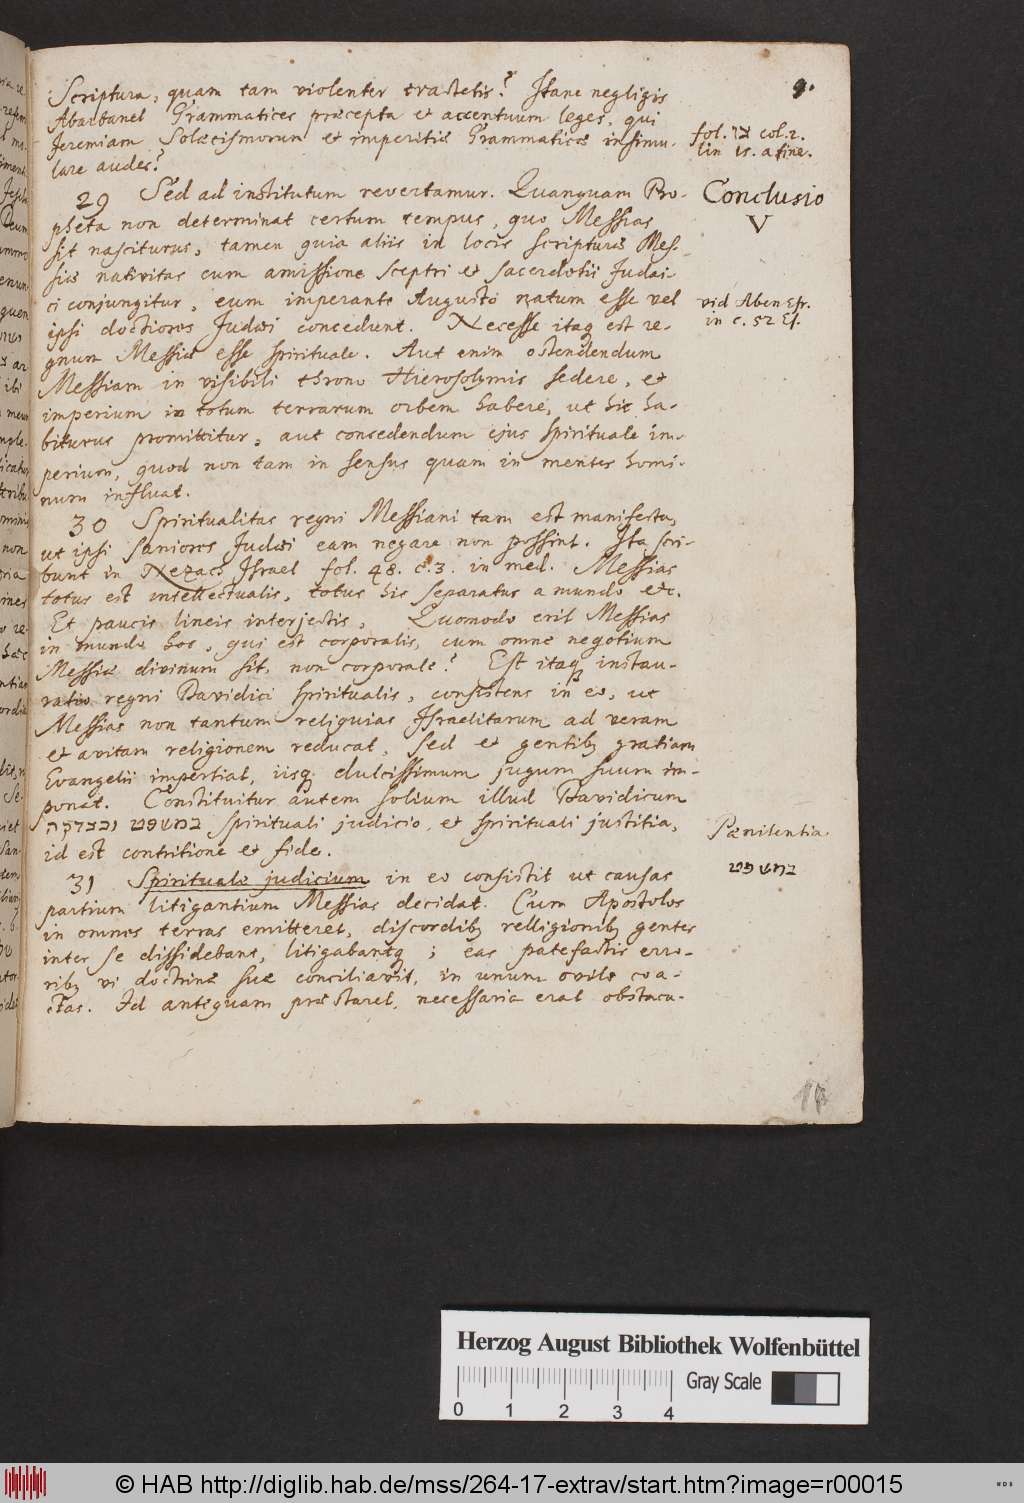 9.
Scriptura, quam tam violenter tractetis? Itane negligis
Abarbanel Grammatices præcepta et accentuum leges, qui
Jeremiam Solœcismorum et imperitiæ Grammaticæ insimu-
lare audes?
fol. צו col. 2.
lin 15. a fine.
29 Sed ad institutum revertamur. Quanquam Pro-
pheta non determinat certum tempus, quo Messias
sit nasciturus, tamen quia aliis in locis scripturæ Mes-
siæ nativitas cum amissione sceptri et sacerdotii Judai-
ci conjungitur, eum imperante Augusto natum esse vel
ipsi doctiores Judæi concedunt. Necesse itaq est re-
gnum Messiæ esse spirituale. Aut enim ostendendum
Messiam in visibili throno Hierosolymis sedere, et
imperium in totum terrarum orbem habere, ut hic ha-
biturus promittitur, aut concedendum ejus spirituale im-
perium, quod non tam in sensus quam in mentes homi-
num influat.
Conclusio
V
vid Aben Esr.
in c. 52 Es.
30 Spiritualitas regni Messiani tam est manifesta,
ut ipsi saniores Judæi eam negare non possint. Ita scri-
bunt in Nezach Israel fol. 48. c. 3. in med. Messias
totus est intellectualis, totus hic separatus a mundo etc.
Et paucis lineis interjectis, Quomodo erit Messias
in mundo hoc, qui est corporalis, cum omne negotium
Messiæ divinum sit, non corporale? Est itaq instau-
ratio regni Davidici spiritualis, consistens in eo, ut
Messias non tantum reliquias Israelitarum ad veram
et avitam religionem reducat, sed et gentib gratiam
Evangelii impertiat, iisq dulcissimum jugum suum im-
ponat. Constituitur autem solium illud Davidicum
במשפט ובצדקה spirituali judicio, et spirituali justitia,
id est contritione et fide.
Pænitentia
במשפט
31 Spirituale judicium in eo consistit ut causas
partium litigantium Messias decidat. Cum Apostolos
in omnes terras emitteret, discordib relligionib gentes
inter se dissidebant, litigabantq; eas patefactis erro-
rib vi doctrinæ suæ conciliavit, in unum ovile coa-
ctas. Id antequam præstaret, necessaria erat obstacu-
Herzog August Bibliothek Wolfenbüttel
Gray Scale
0 1 2 3 4
© HAB http://diglib.hab.de/mss/264-17-extrav/start.htm?image=r00015